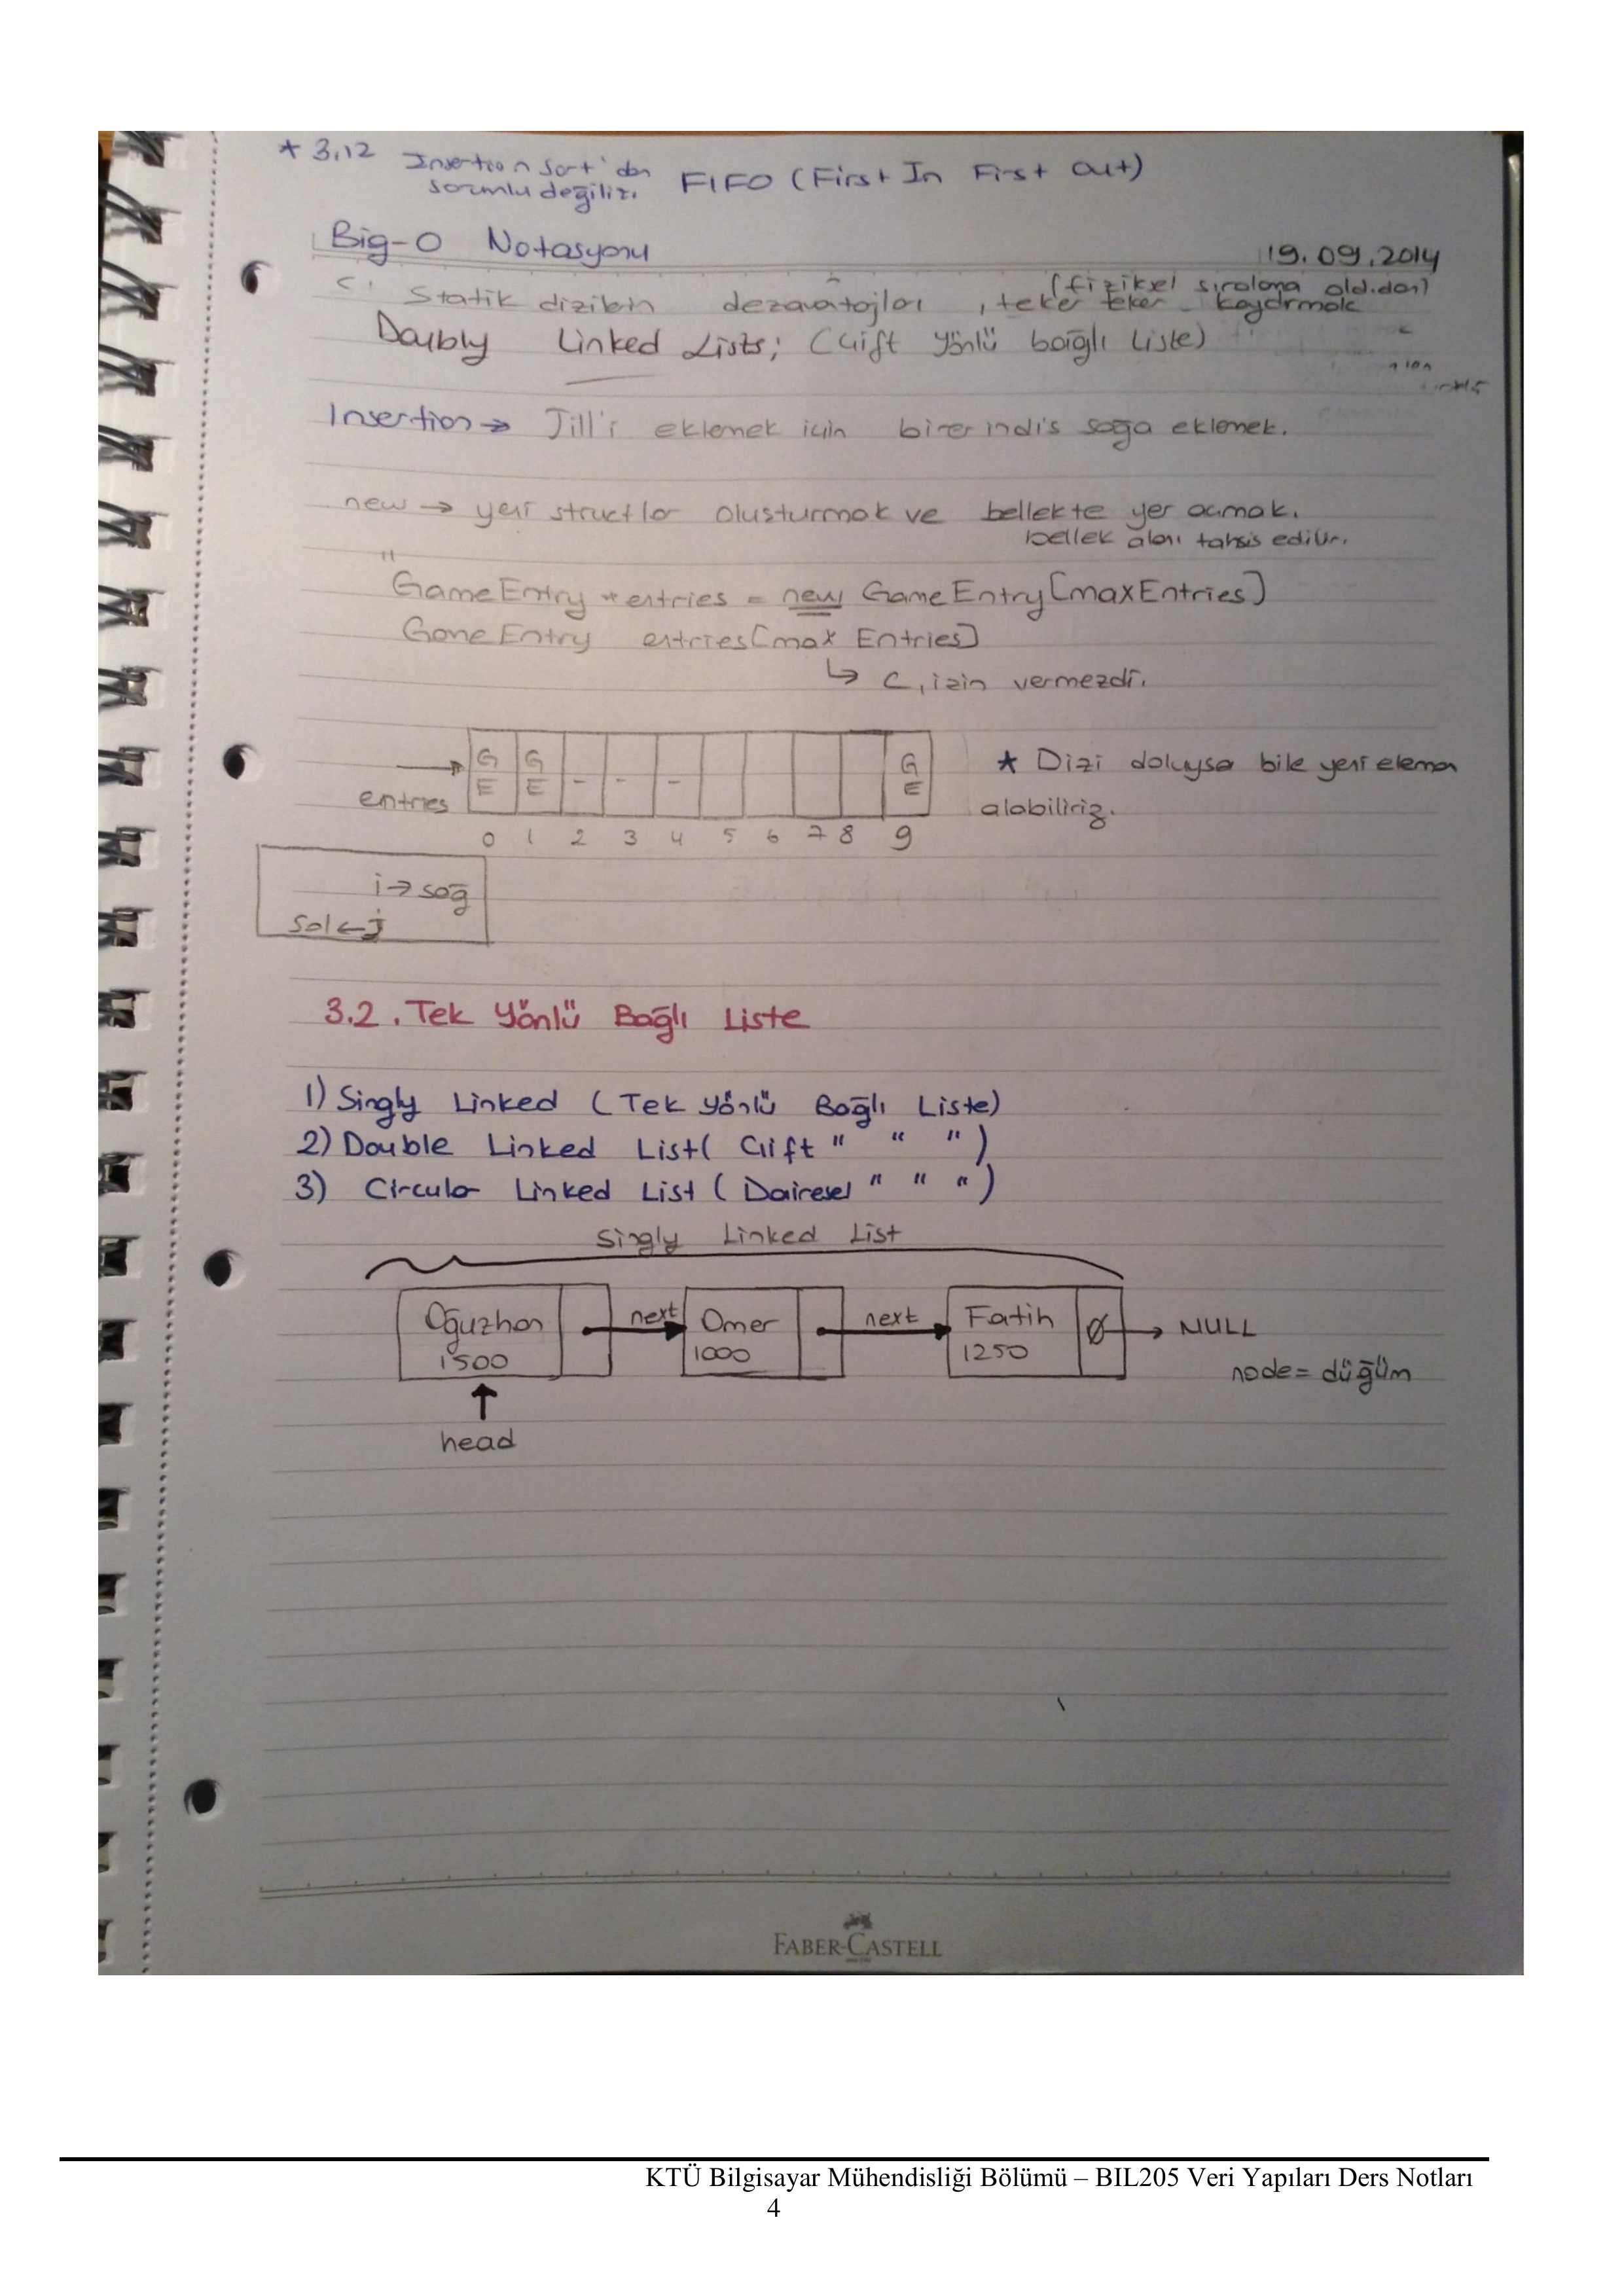 * 3.12 Insertion Sort'dan FIFO (First In First Out)
sorumlu değiliz.
Big-O Notasyonu
19.09.2014
(fiziksel sıralama old.dan)
Statik dizilerin dezavântajları, teker teker kaydırmak
Doubly Linked Lists; (Çift Yönlü bağlı Liste)
Insertion → Jill'i eklemek için birer indis sağa eklemek.
new → yeni structlar oluşturmak ve bellekte yer açmak.
bellek alanı tahsis edilir.
"
GameEntry *entries = new GameEntry[maxEntries]
GameEntry entries[max Entries]
↳ C, izin vermezdi.
G G G
E E - - - E
entries
0 1 2 3 4 5 6 7 8 9
* Dizi doluysa bile yeni eleman
alabiliriz.
i→sağ
sol←j
3.2. Tek Yönlü Bağlı Liste
1) Singly Linked (Tek Yönlü Bağlı Liste)
2) Double Linked List( Çift " " ")
3) Circular Linked List (Dairesel " " ")
Singly Linked List
Oğuzhan next Ömer next Fatih Ø → NULL
1500 1000 1250
node = düğüm
head
FABER-CASTELL
KTÜ Bilgisayar Mühendisliği Bölümü – BIL205 Veri Yapıları Ders Notları
4